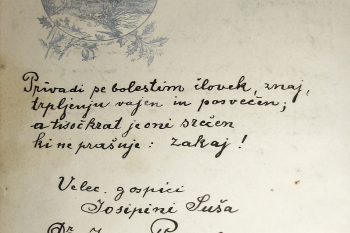 Privadi se bolestim človek, znaj,
trpljenju vajen in posvečen;
a tisočkrat je oni srečen
ki ne prašuje: zakaj!
Velec. gospici
Josipini Suša
Dr.